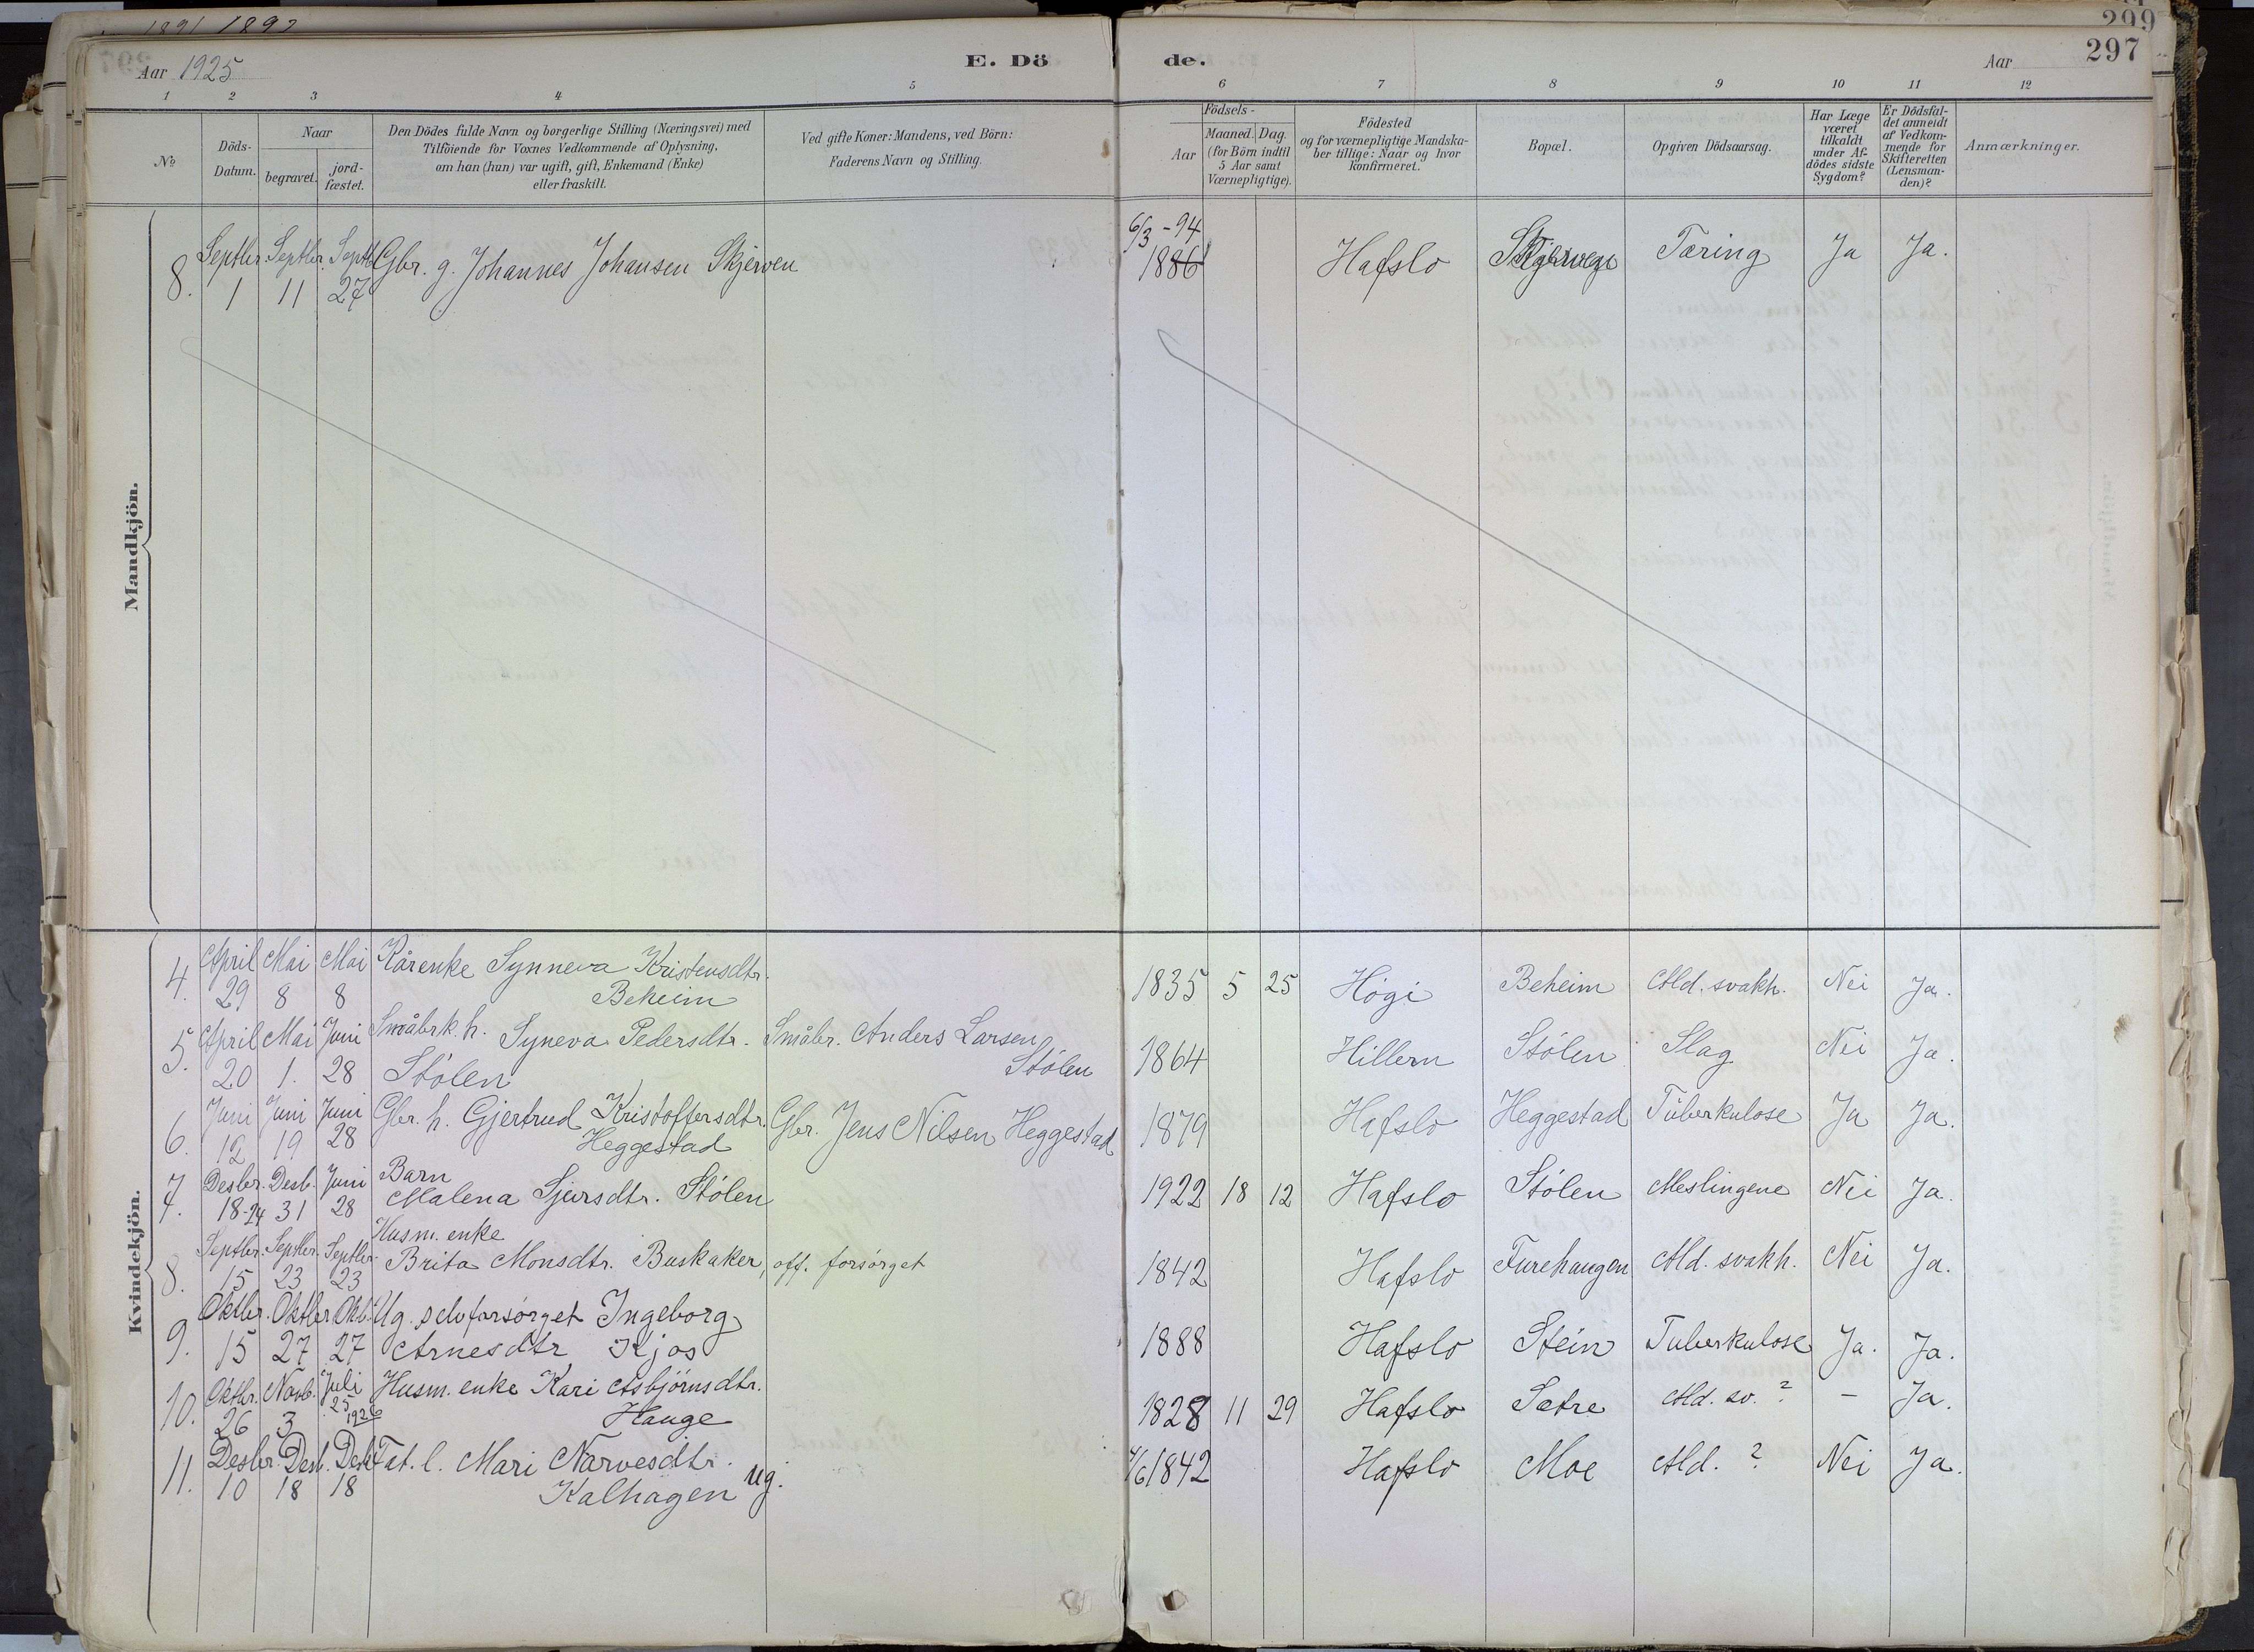 1891 1892
299
297
Aar 1925
E. Dö
de.
Aar
1 2 3 4 5 6 7 8 9 10 11 12
No
Döds-Datum.
Naar
begravet.
jord-fæstet.
Den Dödes fulde Navn og borgerlige Stilling (Næringsvei) med
Tilföiende for Voxnes Vedkommende af Oplysning,
om han (hun) var ugift, gift, Enkemand (Enke)
eller fraskilt.
Ved gifte Koner: Mandens, ved Börn:
Faderens Navn og Stilling.
Födsels-
Aar
Maaned. Dag.
(for Börn indtil
5 Aar samt
Værnepligtige).
Födested
og for værnepligtige Mandska-
ber tillige: Naar og hvor
konfirmeret.
Bopæl.
Opgiven Dödsaarsag.
Har Læge
været
tilkaldt
under Af-
dödes sidste
Sygdom?
Er Dödsfal-
det anmeldt
af Vedkom-
mende for
Skifteretten
(Lensman-
den)?
Anmærkninger.
Mandkjön.
6/3 - 94
Septbr. Septbr. Septb. Gbr. g. Johannes Johansen Skjerven 1886 Hafslo Skjerven Tæring Ja Ja.
8. 1 11 27
Kvindekjön.
April Mai Mai Kårenke Synneva Kristensdtr.
4. 29 8 8 Beheim 1835 5 25 Högi Beheim Ald. svakh. Nei Ja.
April Mai Juni Småbrk. h. Syneva Pedersdtr. Småbr. Anders Larsen
5. 20 1. 28 Stölen Stölen 1864 Hillern Stölen Slag Nei Ja.
Juni Juni Juni Gbr. h. Gjertrud Kristoffersdtr. Gbr. Jens Nilsen Heggestad
6. 12 19 28 Heggestad 1879 Hafslo Heggestad Tuberkulose Ja Ja.
Desbr. Desb. Juni Barn
7. 18-24 31 28 Malena Sjursdtr. Stölen 1922 18 12 Hafslo Stölen Meslingene Nei Ja.
Septbr. Septbr. Septbr. Husm. enke
8. 15 23 23 Brita Monsdtr. Buskaker, off. forsörget 1842 Hafslo Furehaugen Ald. svakh. Nei Ja.
Oktbr. Oktbr. Okb. Ug. selvforsörget Ingeborg
9. 15 27 27 Arnesdtr Kjos 1888 Hafslo Stein Tuberkulose Ja. Ja.
Oktbr. Novb. Juli Husm. enke Kari Asbjörnsdtr.
10. 26 3 25 1926 Hauge 1828 11 29 Hafslo Sætre Ald. sv. ? - Ja.
Desbr. Desb. Desb. Fat. l. Mari Narvesdtr.
11. 10 18 18 Kalhagen ug. 4/6 1842 Hafslo Moe Ald. ? Nei Ja.